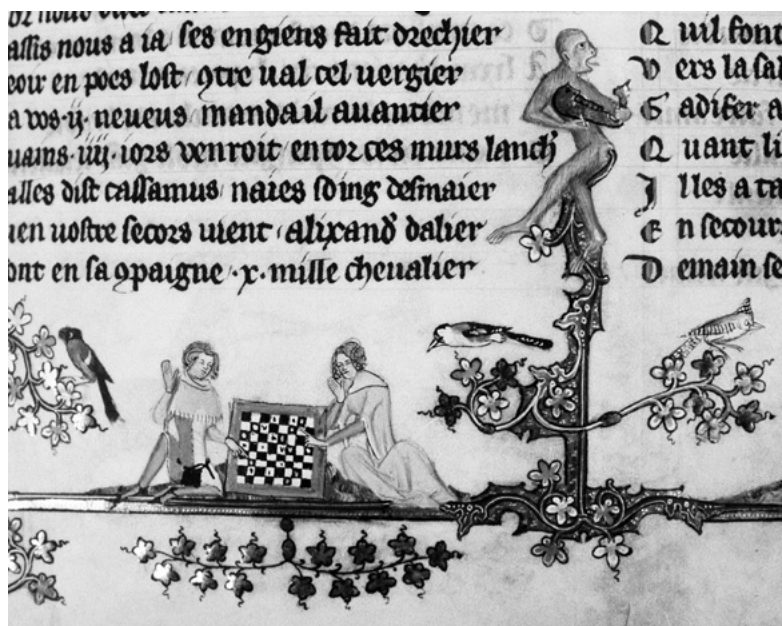 assis nous a ia ses engiens fait drechier
eoir en poes lost 9tre ual cel uergier
a vos ·ij· neueus manda il auantier
uams ·iiij· iors venroit entor ces murs lanch'
alles dist cassamus naies soing desmaier
ien uostre secors uient alixand' dalier
ont en sa 9paigne ·x· mille cheualier
Q uil font
V ers la sal
S adifer a
Q uant li
J lles a ta
E n secours
D emain se